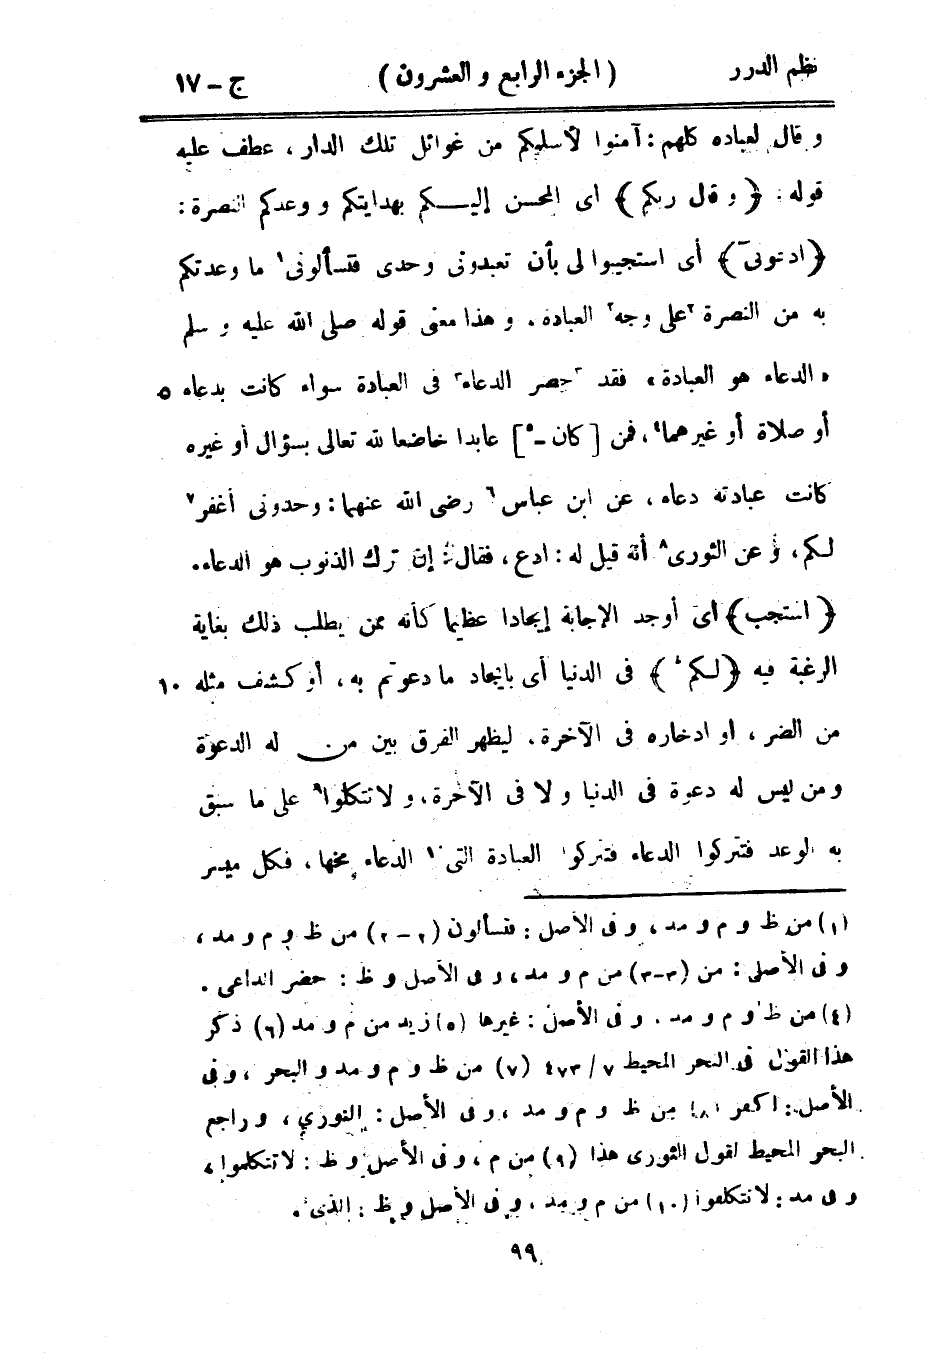 نظم الدرر ( الجزء الرابع و العشرون ) ج – ١٧
و قال لعباده كلهم : آمنوا لأسلمكم من غوائل تلك الدار ، عطف عليه
قوله : ﴿ و قال ربكم ﴾ اى المحسن إليـكم بهدايتكم و وعدكم النصرة :
﴿ ادعونىٓ ﴾ أى استجيبوا لى بأن تعبدونى وحدى فتسألونى١ ما وعدتكم
به من النصرة ٢على وجه٢ العبادة . و هذا معنى قوله صلى الله عليه و سلم
« الدعاء هو العبادة » فقد ٣حصر الدعاء٣ فى العبادة سواء كانت بدعاء ٥
أو صلاة أو غيرهما٤ ، فمن [ كان -٥ ] عابدا خاضعا لله تعالى بسؤال أو غيره
كانت عبادته دعاء ، عن ابن عباس٦ رضى الله عنهما : وحدونى أغفر٧
لـكم ، و عن الثورى٨ أنه قيل له : ادع ، فقال : إن ترك الذنوب هو الدعاء .
﴿ استجب ﴾ اى أوجد الإجابة إيجادا عظيما كأنه ممن يطلب ذلك بغاية
الرغبة فيه ﴿ لـكم ﴾ فى الدنيا أى بايجاد ما دعوتم به ، أو كشف مثله ١٠
من الضر ، او ادخاره فى الآخرة . ليظهر الفرق بين من له الدعوة
و من ليس له دعوة فى الدنيا و لا فى الآخرة ، و لا تتكلوا٩ على ما سبق
به الوعد فتتركوا الدعاء فتتركوا العبادة التى١٠ الدعاء مخها ، فكل ميسر
(١) من ظ و م و مد ، و فى الأصل : فتسألون (٢ – ٢) من ظ و م و مد ،
و فى الأصل : من (٣-٣) من م و مد ، و فى الأصل و ظ : حضر الداعى .
(٤) من ظ و م و مد . و فى الأصل : غيرها (٥) زيد من م و مد (٦) ذكر
هذا القول فى البحر المحيط ٧ / ٤٧٣ (٧) من ظ و م و مد و البحر ، و فى
الأصل : اكفر (٨) من ظ و م و مد ، و فى الأصل : النورى ، و راجع
البحر المحيط لقول الثورى هذا (٩) من م ، و فى الأصل و ظ : لا تتكلموا ،
و فى مد : لا تتكلفوا (١٠) من م و مد ، و فى الأصل و ظ : الذى .
٩٩